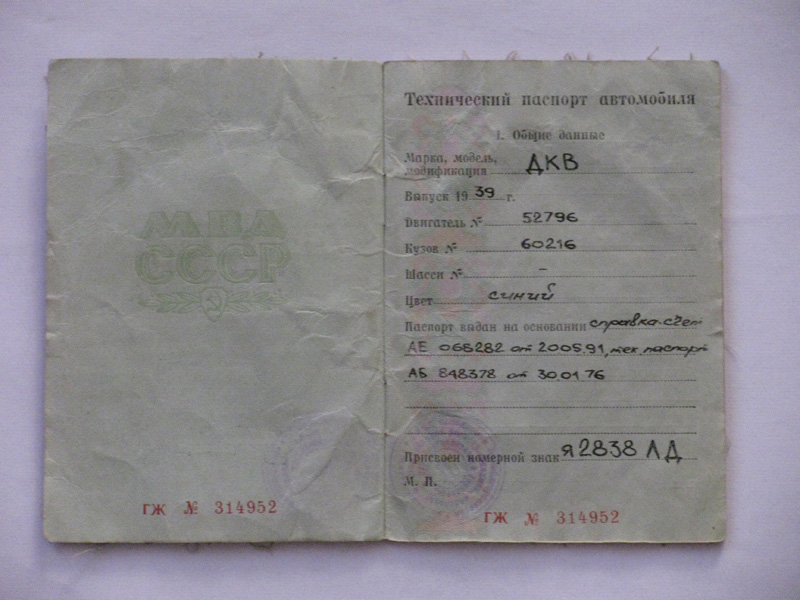 МВД
СССР
ГЖ № 314952
Технический паспорт автомобиля
1. Общие данные
Марка, модель,
модификация ДКВ
Выпуск 1939 г.
Двигатель № 52796
Кузов № 60216
Шасси № –
Цвет синий
Паспорт выдан на основании справка-счет
АЕ 065282 от 2005.91, тех. паспорт
АБ 848378 от 30.01 76
Присвоен номерной знак я 2838 ЛД
М. П.
ГЖ № 314952